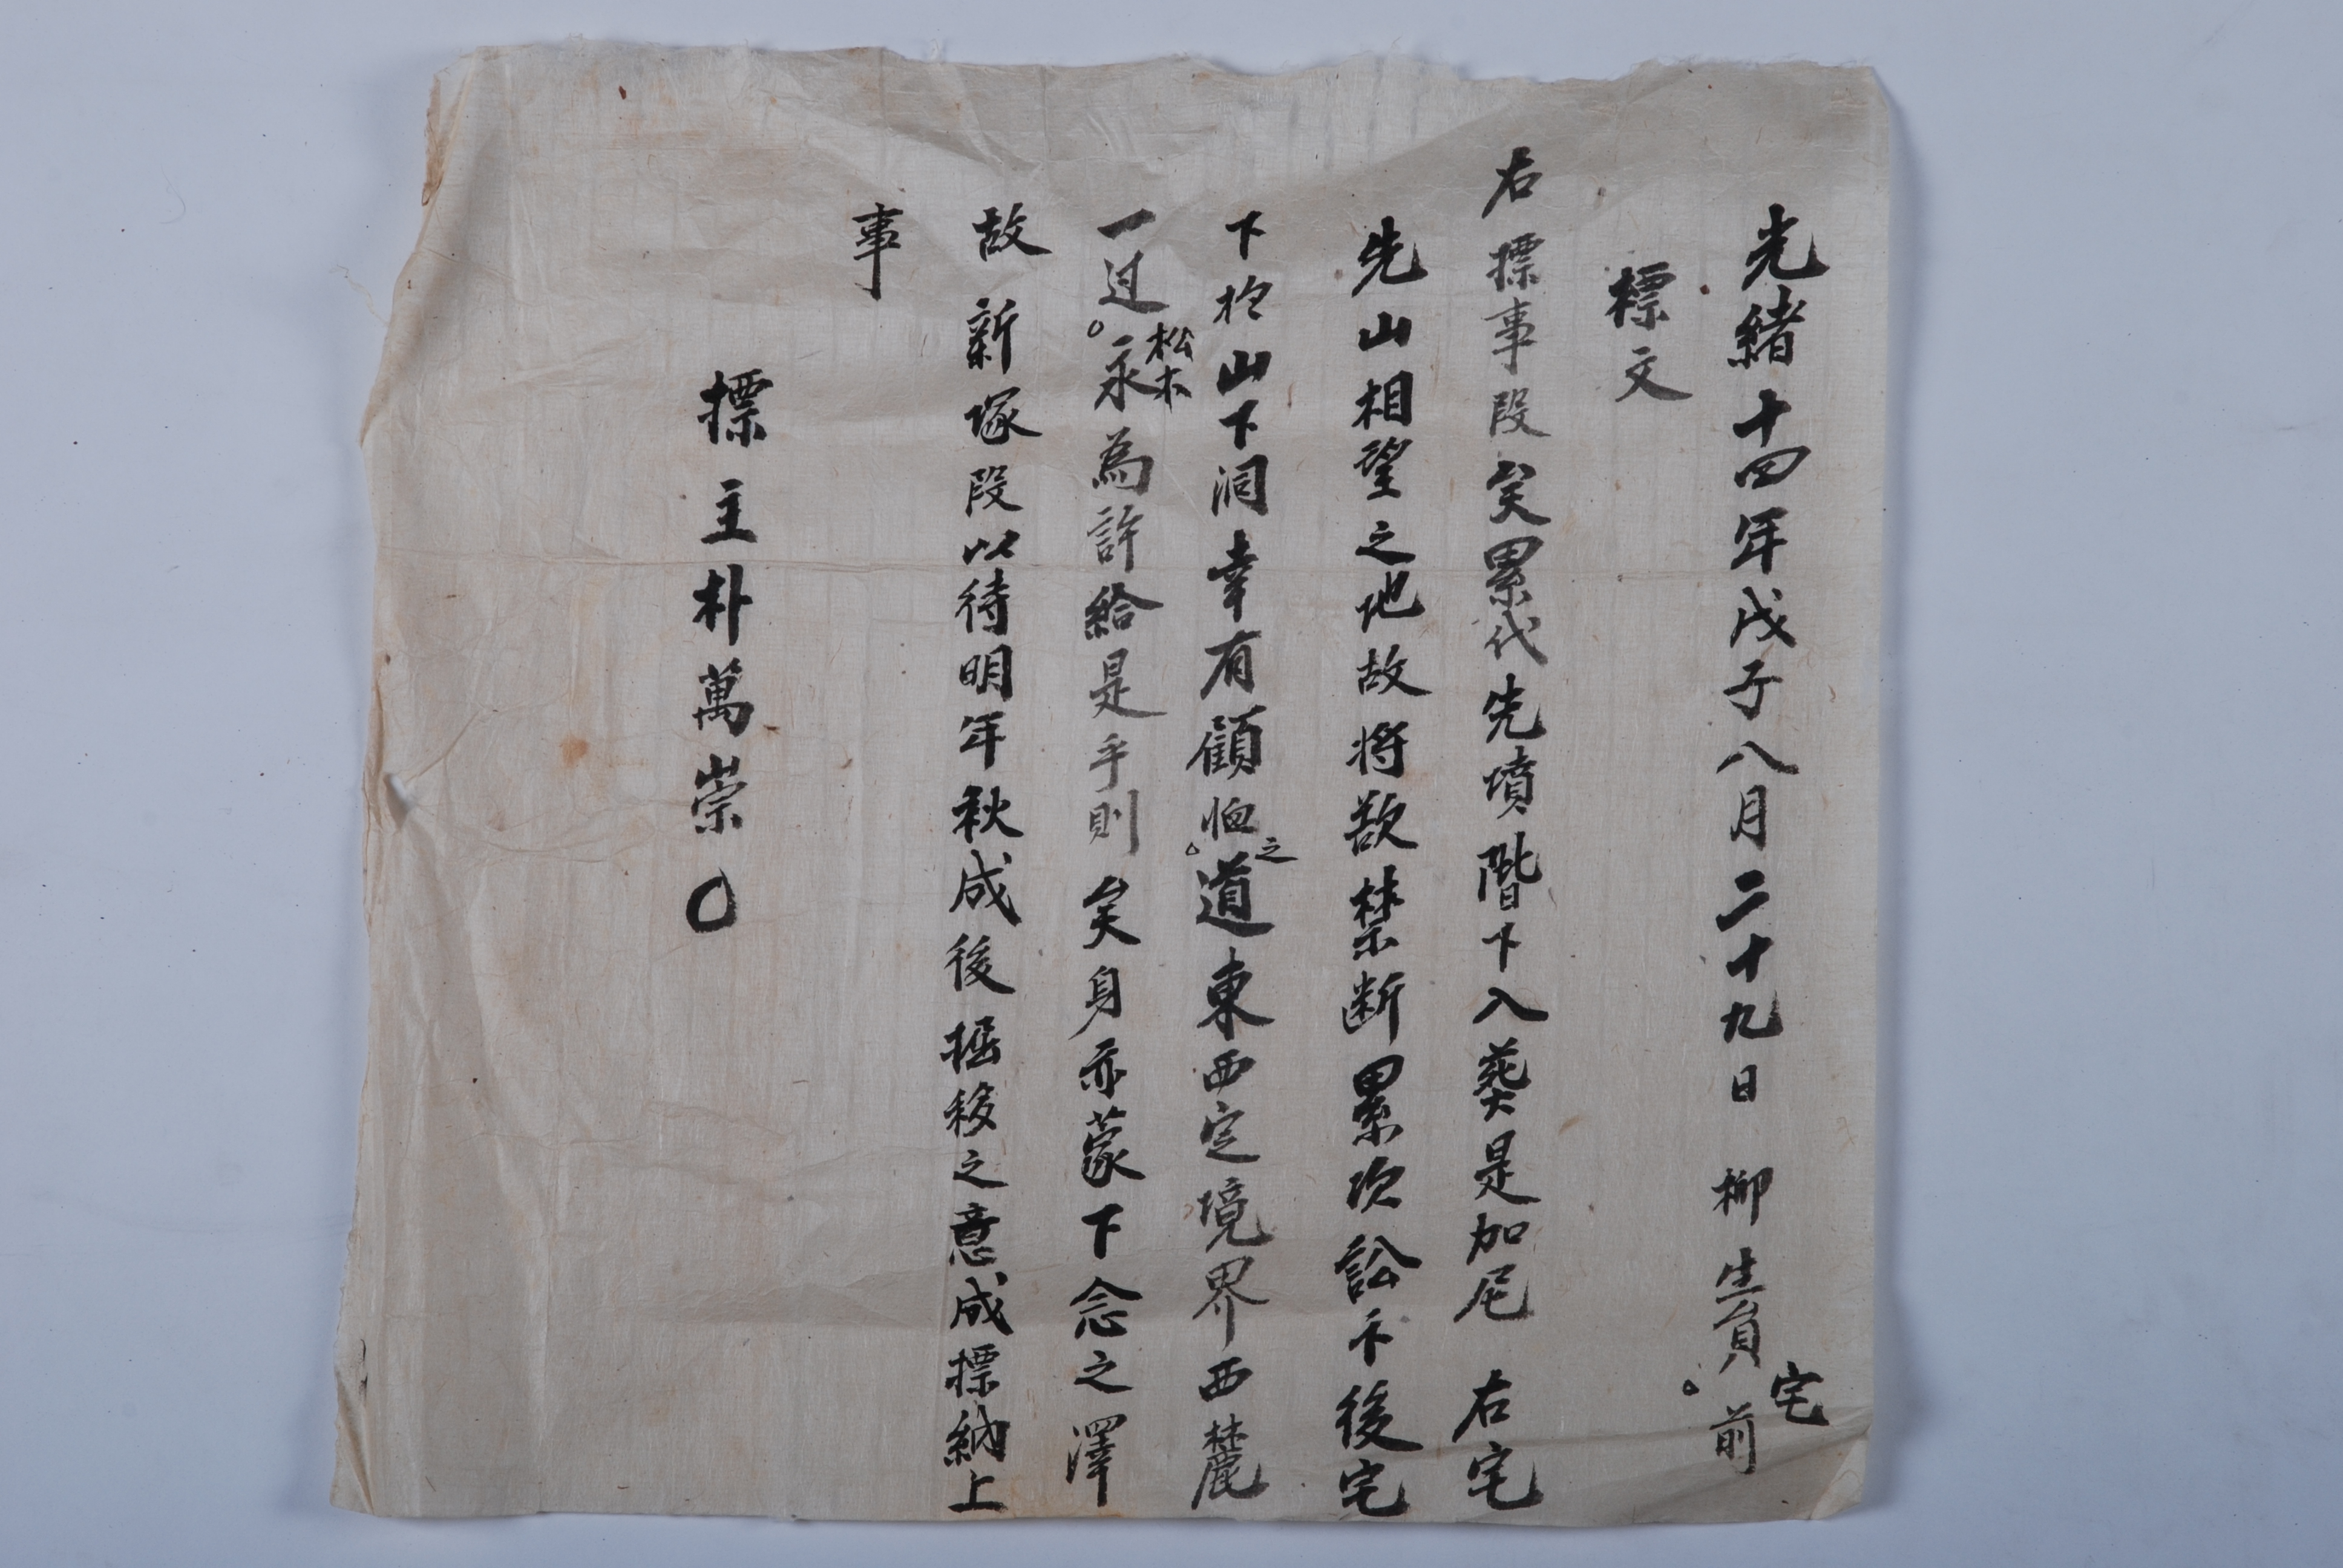 光緒十四年戊子八月二十九日 柳生員宅前
標文
右摽事段矣累代先墳階下入葬是加尼 右宅
先山相望之地故將欲禁断累次訟卞後宅
下抡山下洞幸有顧恤之道東西定境界西麓
一过松木永為許給是乎則矣身亦蒙下念之澤
故新塚段以待明年秋成後掘移之意成摽納上
事
摽主朴萬崇〇